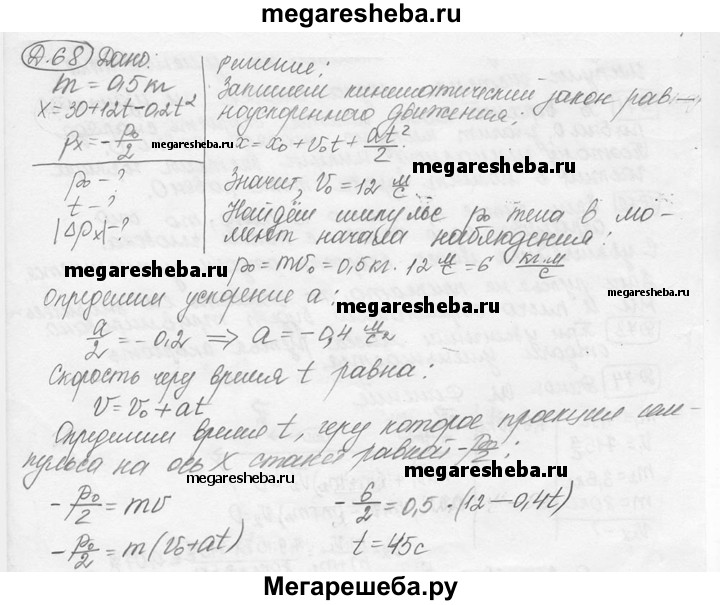 megaresheba.ru
Д.68 Дано:
m = 0,5 кг
x = 30 + 12t − 0,2t²
px = − p₀/2
p₀ − ?
t − ?
|Δpx| − ?
Решение:
Запишем кинематический закон рав-
ноускоренного движения:
www.megaresheba.ru
x = x₀ + v₀t + at²/2.
megaresheba.ru
Значит, v₀ = 12 м/с
Найдём импульс p₀ тела в мо-
мент начала наблюдения:
www.megaresheba.ru
p₀ = mv₀ = 0,5 кг · 12 м/с = 6 кг·м/с
Определим ускорение a:
megaresheba.ru
a/2 = −0,2 ⇒ a = −0,4 м/с²
Скорость через время t равна:
v = v₀ + at
megaresheba.ru
Определим время t, через которое проекция им-
пульса на ось X станет равной −p₀/2:
www.megaresheba.ru
−p₀/2 = mv
−6/2 = 0,5 · (12 − 0,4t)
−p₀/2 = m(v₀ + at)
t = 45 с
Мегарешеба.ру